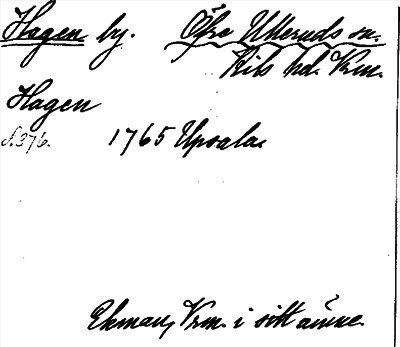 Hagen by. Öfre Ulleruds sn.
Kils hd. Vrm.
Hagen
s. 376. 1765 Upsala.
Ekman, Vrm. i sitt ämne.